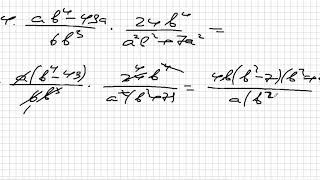 4. (ab⁴-49a)/(6b³) · (24b⁴)/(a²b²+7a²) =
a(b⁴-49)/(6b³) · (24b⁴)/(a²(b²+7)) = 4b(b²-7)(b²+ / a(b²